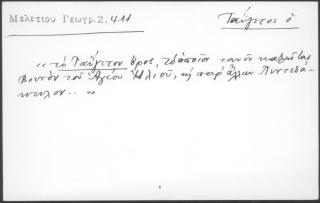 Μελετίου Γεωγρ.2,411
Ταΰγετος ὁ
"τὸ Ταΰγετον ὄρος, τὸ ὁποῖον τανῦν
Βουνὸν τοῦ Ἁγίου Ἠλιοῦ, κὴ παρ' ἄλλων Πεντεδά-
κτυλον.. "